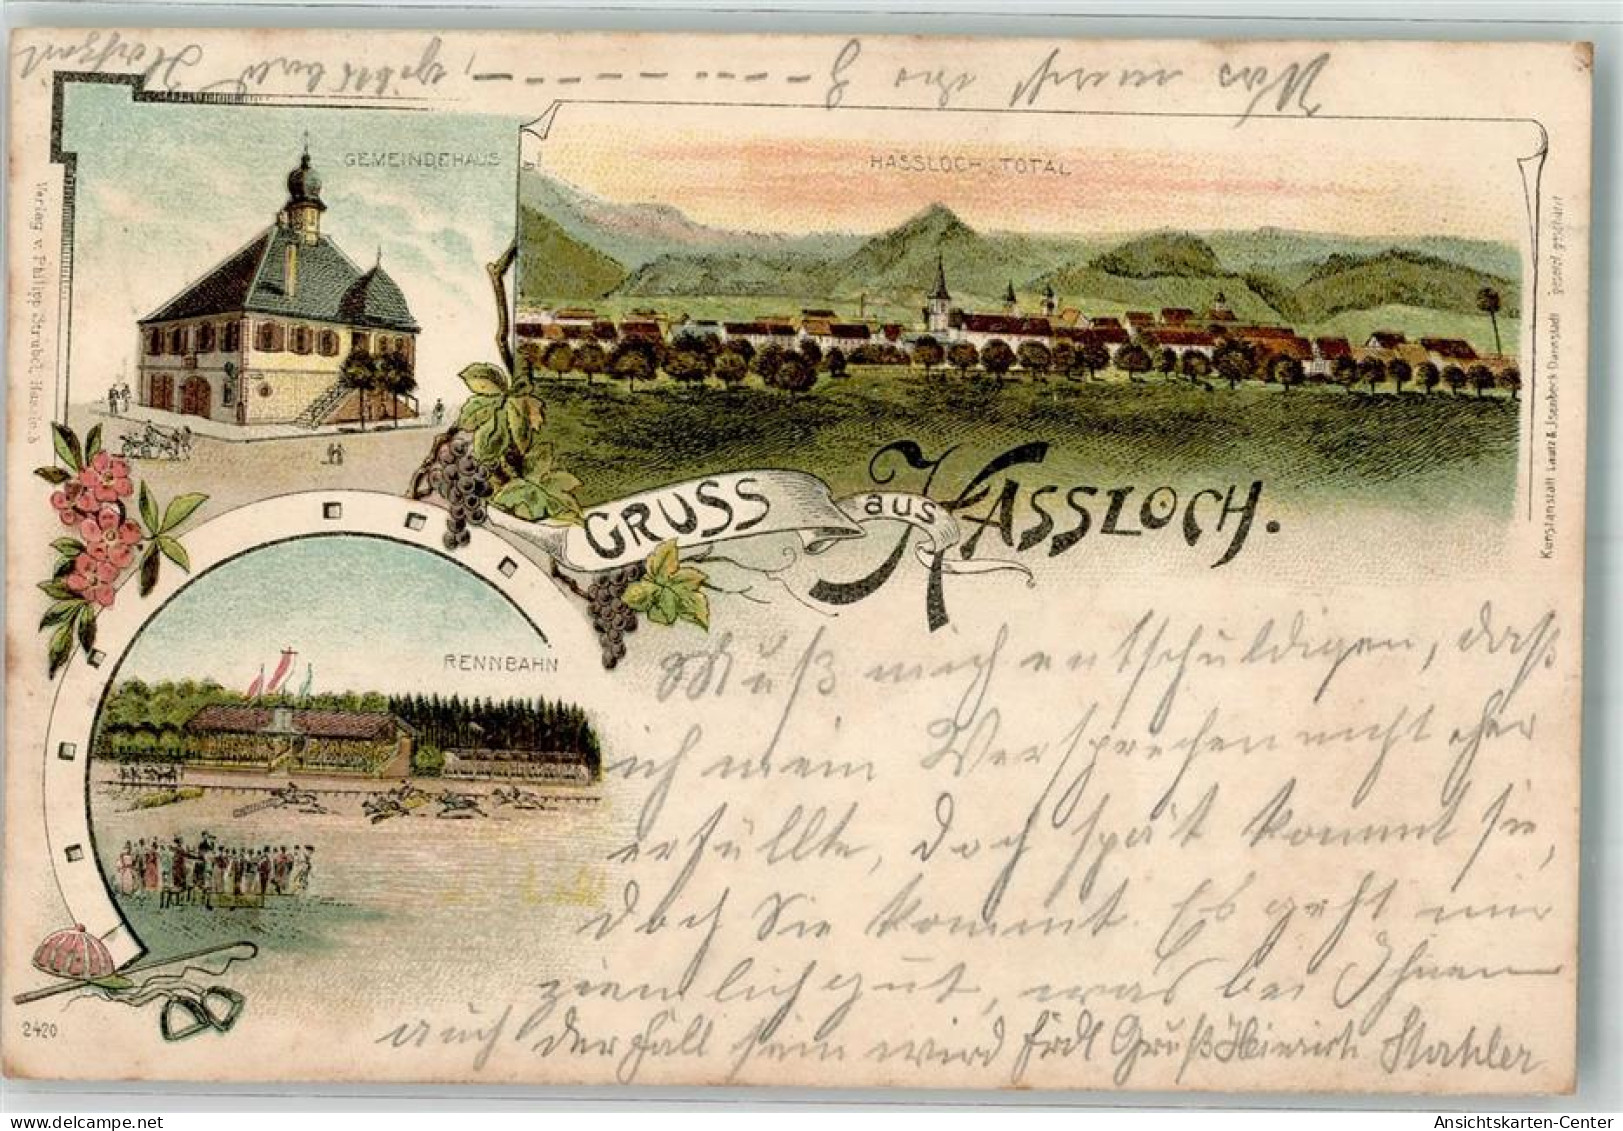 GEMEINDEHAUS
HASSLOCH - TOTAL
Verlag v. Philipp Strubel,
Kunstanstalt Lautz & Jsenbeck Darmstadt
gesetzl. geschützt
GRUSS aus HASSLOCH.
RENNBAHN
Muß mich entschuldigen, daß
ich mein Versprechen nicht eher
erfüllte, doch spät kommt sie,
doch Sie kommt. Es geht mir
ziemlich gut, was bei Ihnen
auch der Fall sein wird Frdl Gruß Heinrich Stahler
2420
Ansichtskarten-Center